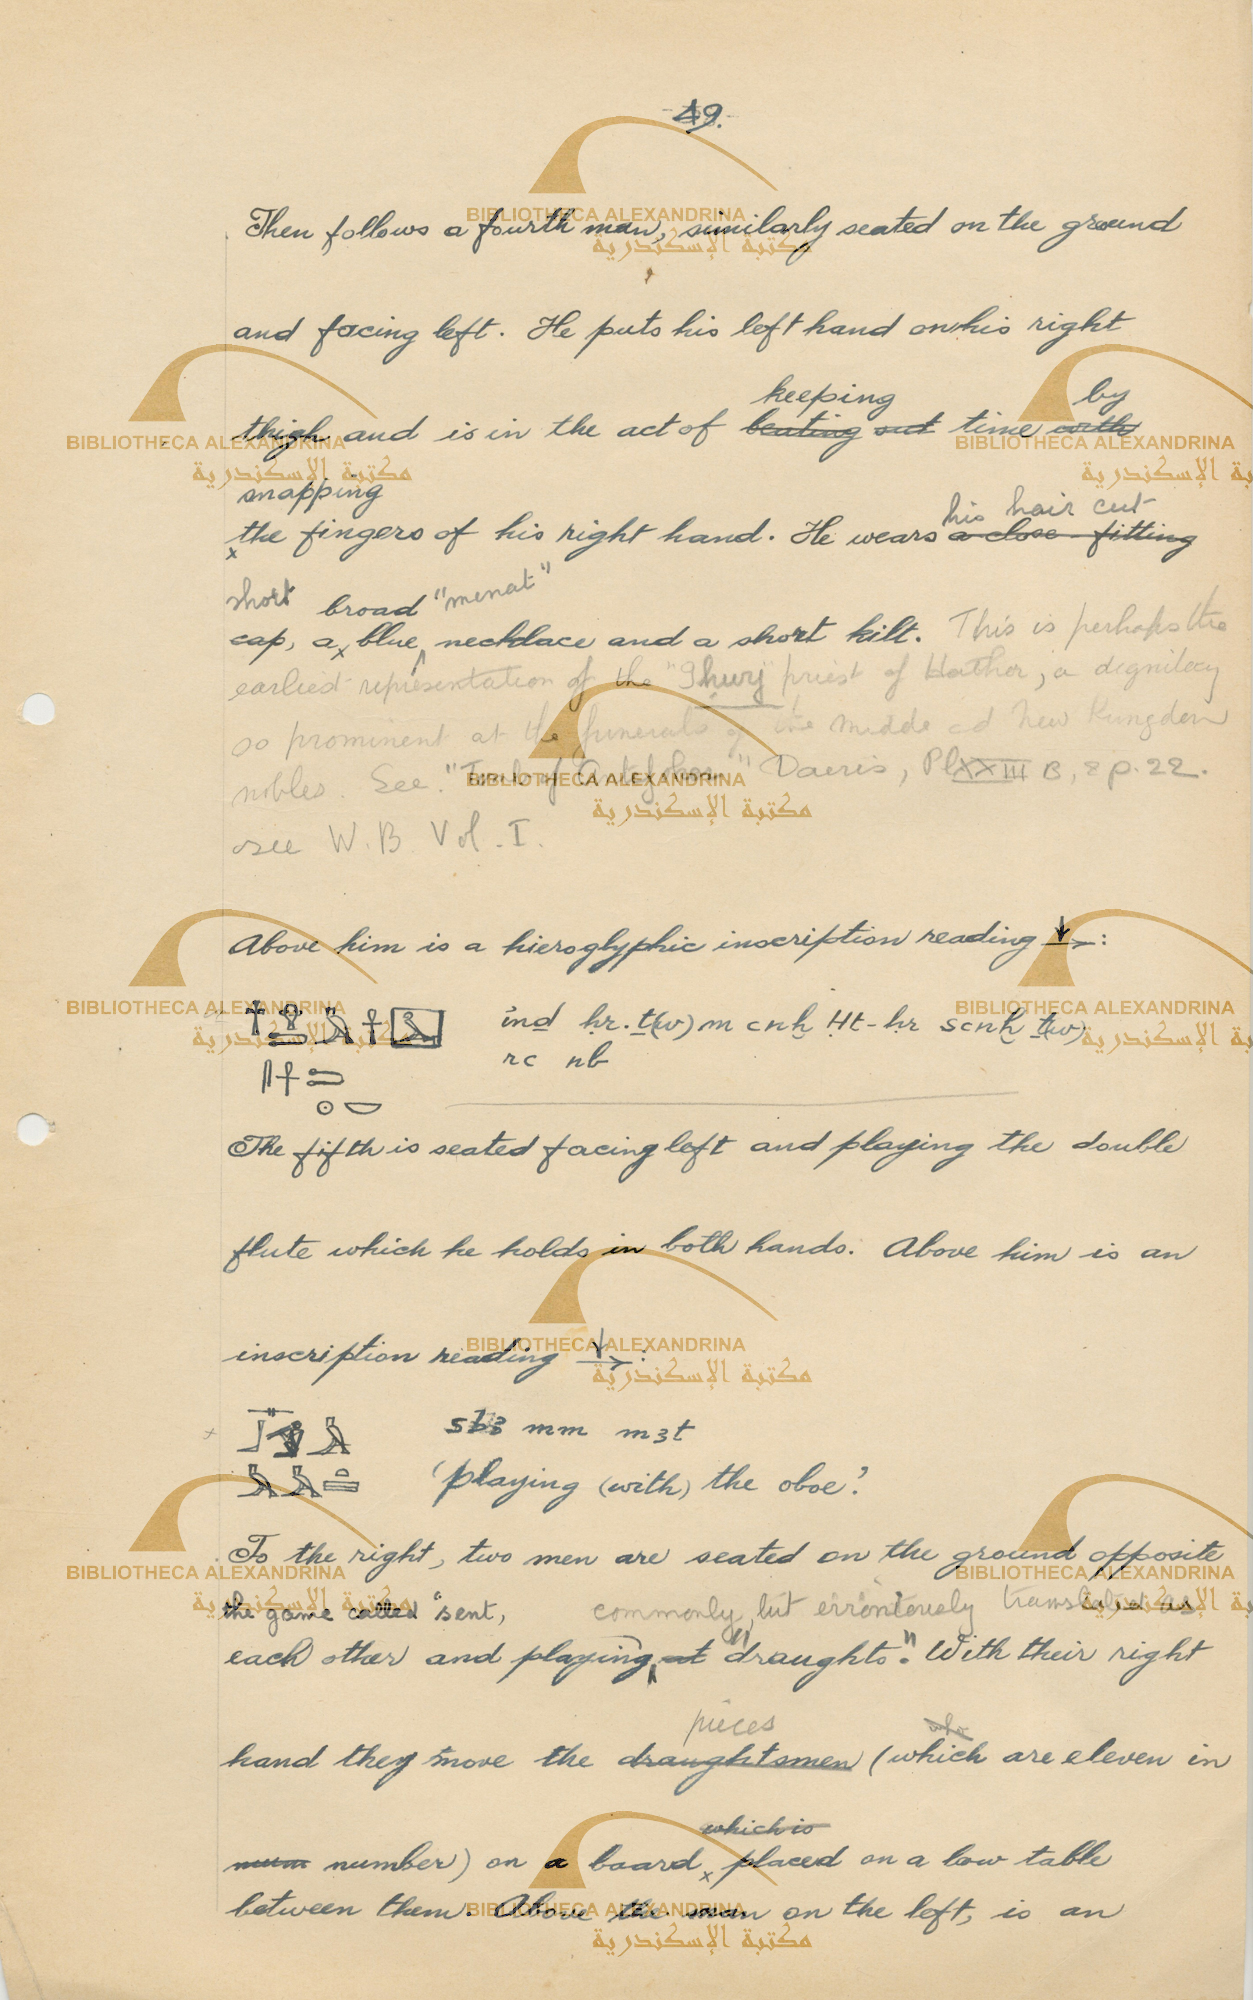 49.
Then follows a fourth man, similarly seated on the ground
and facing left. He puts his left hand on his right
keeping by
thigh and is in the act of beating out time with
snapping
his hair cut
the fingers of his right hand. He wears a close-fitting
short broad "menat"
cap, a blue necklace and a short kilt. This is perhaps the
earliest representation of the "Ihwy" priest of Hathor, a dignitary
so prominent at the funerals of the Middle and New Kingdom
nobles. See "Tomb of Antefoker" Davies, Pl XXIII B, & p. 22.
see W.B. Vol. I.
Above him is a hieroglyphic inscription reading ↓→:
ind ḥr.ṯ(w) m cnḫ Ḥt-ḥr scnḫ ṯ(w)
rc nb
The fifth is seated facing left and playing the double
flute which he holds in both hands. Above him is an
inscription reading ↓→:
sb3 mm m3t
'playing (with) the oboe'
To the right, two men are seated on the ground opposite
the game called "sent, commonly, but erroniously translated as
each other and playing at "draughts". With their right
pieces
hand they move the draughtsmen (which are eleven in
which is
num number) on a board, placed on a low table
between them. Above the man on the left, is an
BIBLIOTHECA ALEXANDRINA
مكتبة الإسكندرية
BIBLIOTHECA ALEXANDRINA
مكتبة الإسكندرية
BIBLIOTHECA ALEXANDRINA
مكتبة الإسكندرية
BIBLIOTHECA ALEXANDRINA
مكتبة الإسكندرية
BIBLIOTHECA ALEXANDRINA
مكتبة الإسكندرية
BIBLIOTHECA ALEXANDRINA
مكتبة الإسكندرية
BIBLIOTHECA ALEXANDRINA
مكتبة الإسكندرية
BIBLIOTHECA ALEXANDRINA
مكتبة الإسكندرية
BIBLIOTHECA ALEXANDRINA
مكتبة الإسكندرية
BIBLIOTHECA ALEXANDRINA
مكتبة الإسكندرية